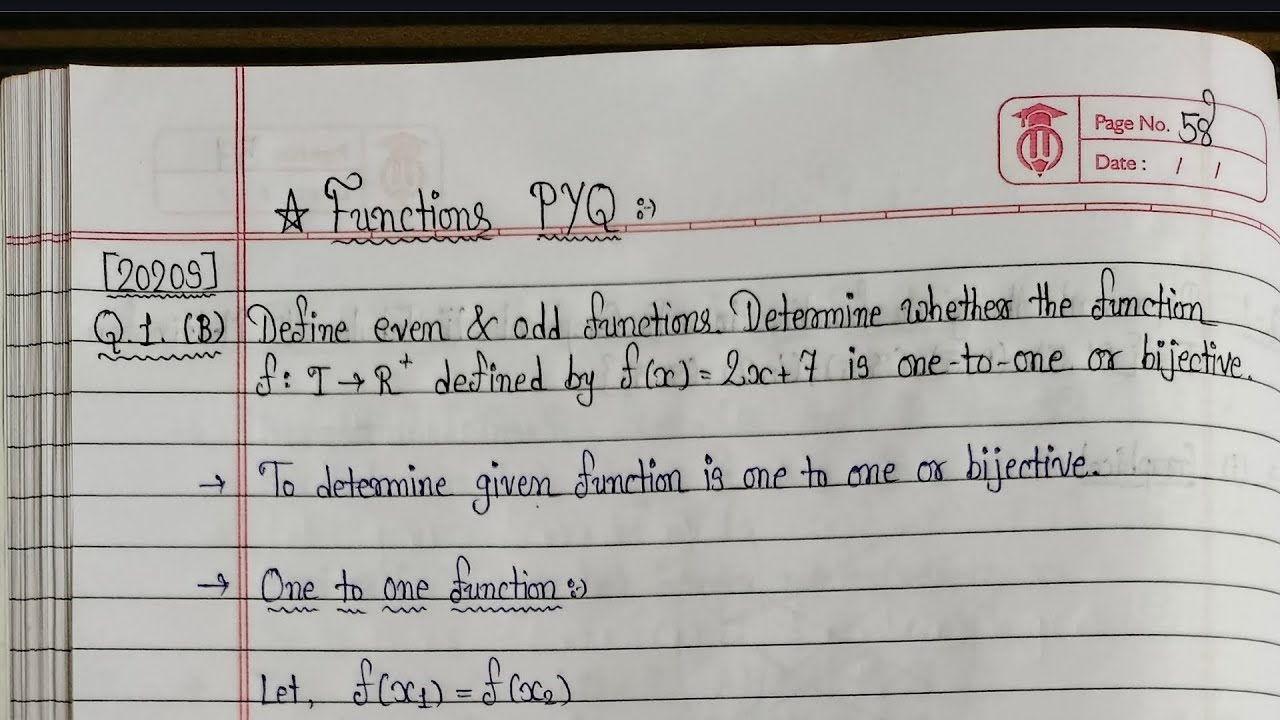 Page No. 58
Date : / /
☆ Functions PYQ :-)
[2020S]
Q.1. (B) Define even & odd functions. Determine whether the function
f : I → R⁺ defined by f(x) = 2x + 7 is one-to-one or bijective.
→ To determine given function is one to one or bijective.
→ One to one function :-)
Let, f(x₁) = f(x₂)